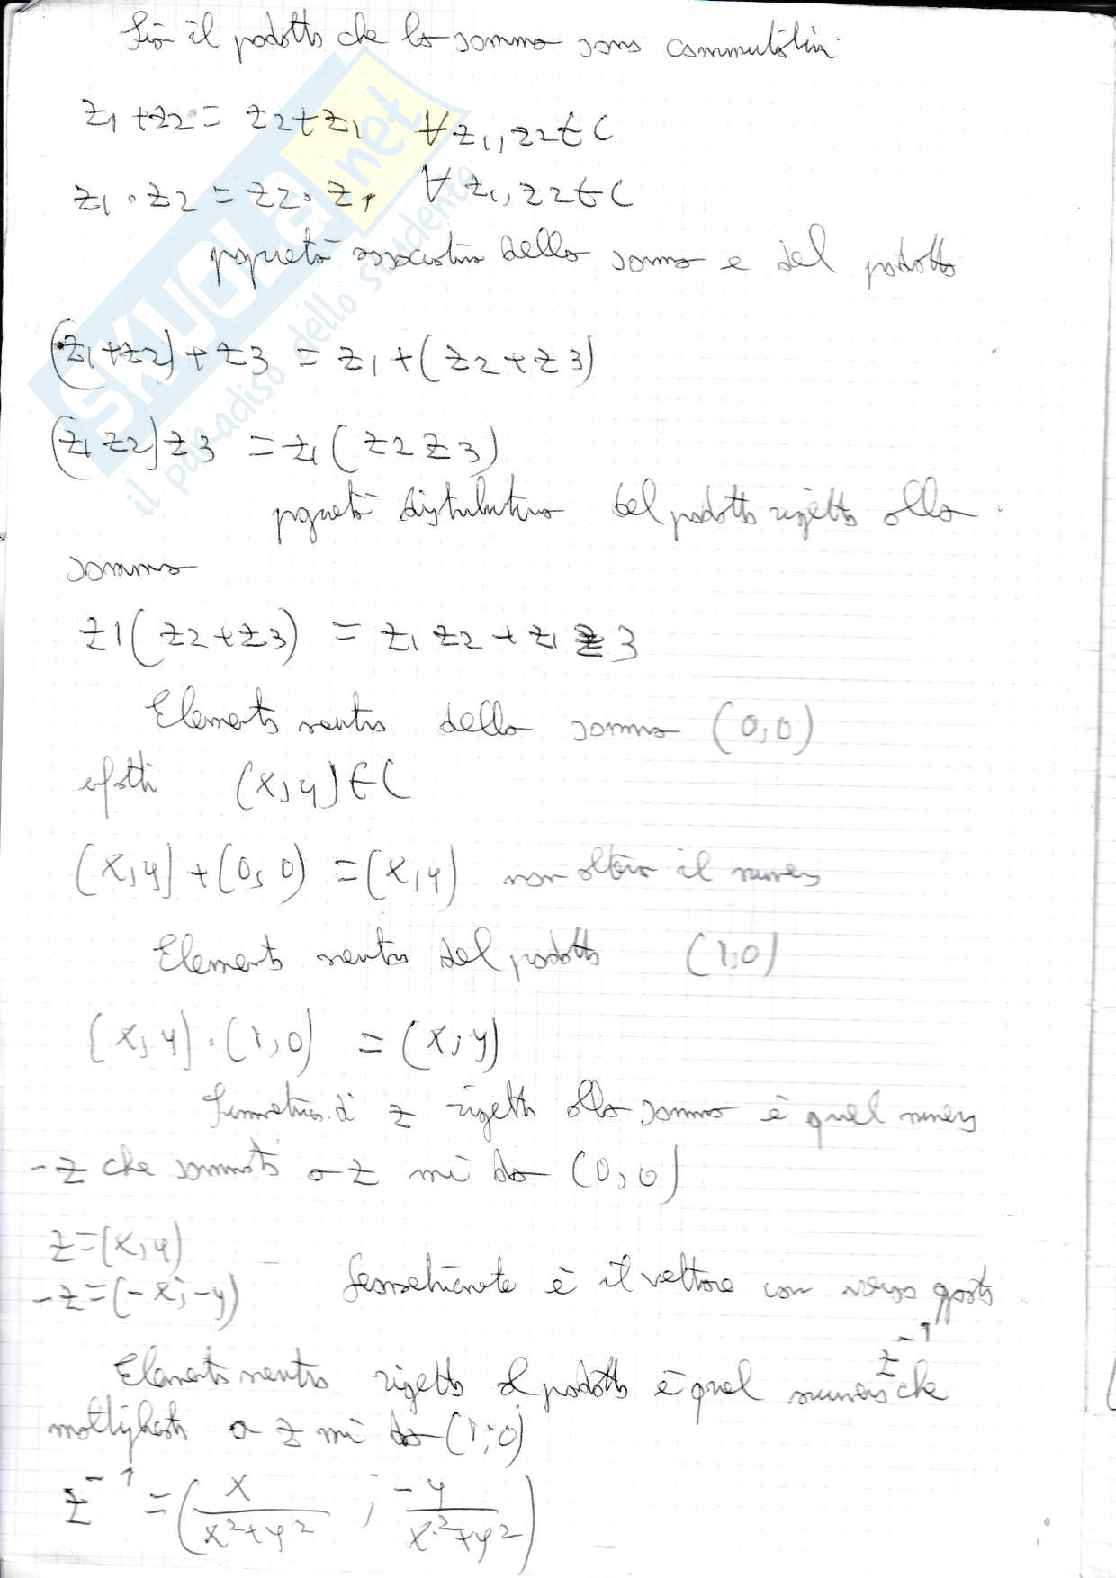 Sia il prodotto che la somma sono commutativi
z1 + z2 = z2 + z1 ∀ z1, z2 ∈ C
z1 · z2 = z2 · z1 ∀ z1, z2 ∈ C
proprietà associativa della somma e del prodotto
(z1 + z2) + z3 = z1 + (z2 + z3)
(z1 z2) z3 = z1 (z2 z3)
proprietà distributiva del prodotto rispetto alla
somma
z1 (z2 + z3) = z1 z2 + z1 z3
Elemento neutro della somma (0,0)
infatti (x,y) ∈ C
(x,y) + (0,0) = (x,y) non altera il numero
Elemento neutro del prodotto (1,0)
(x,y) · (1,0) = (x,y)
Simmetrico di z rispetto alla somma è quel numero
-z che sommato a z mi da (0,0)
z = (x,y)
-z = (-x; -y) Geometricamente è il vettore con verso opposto
Elemento neutro rispetto al prodotto è quel numero z⁻¹ che
moltiplicato a z mi da (1;0)
z⁻¹ = (x/(x²+y²) ; -y/(x²+y²))
SKUOLA.net
il paradiso dello studente